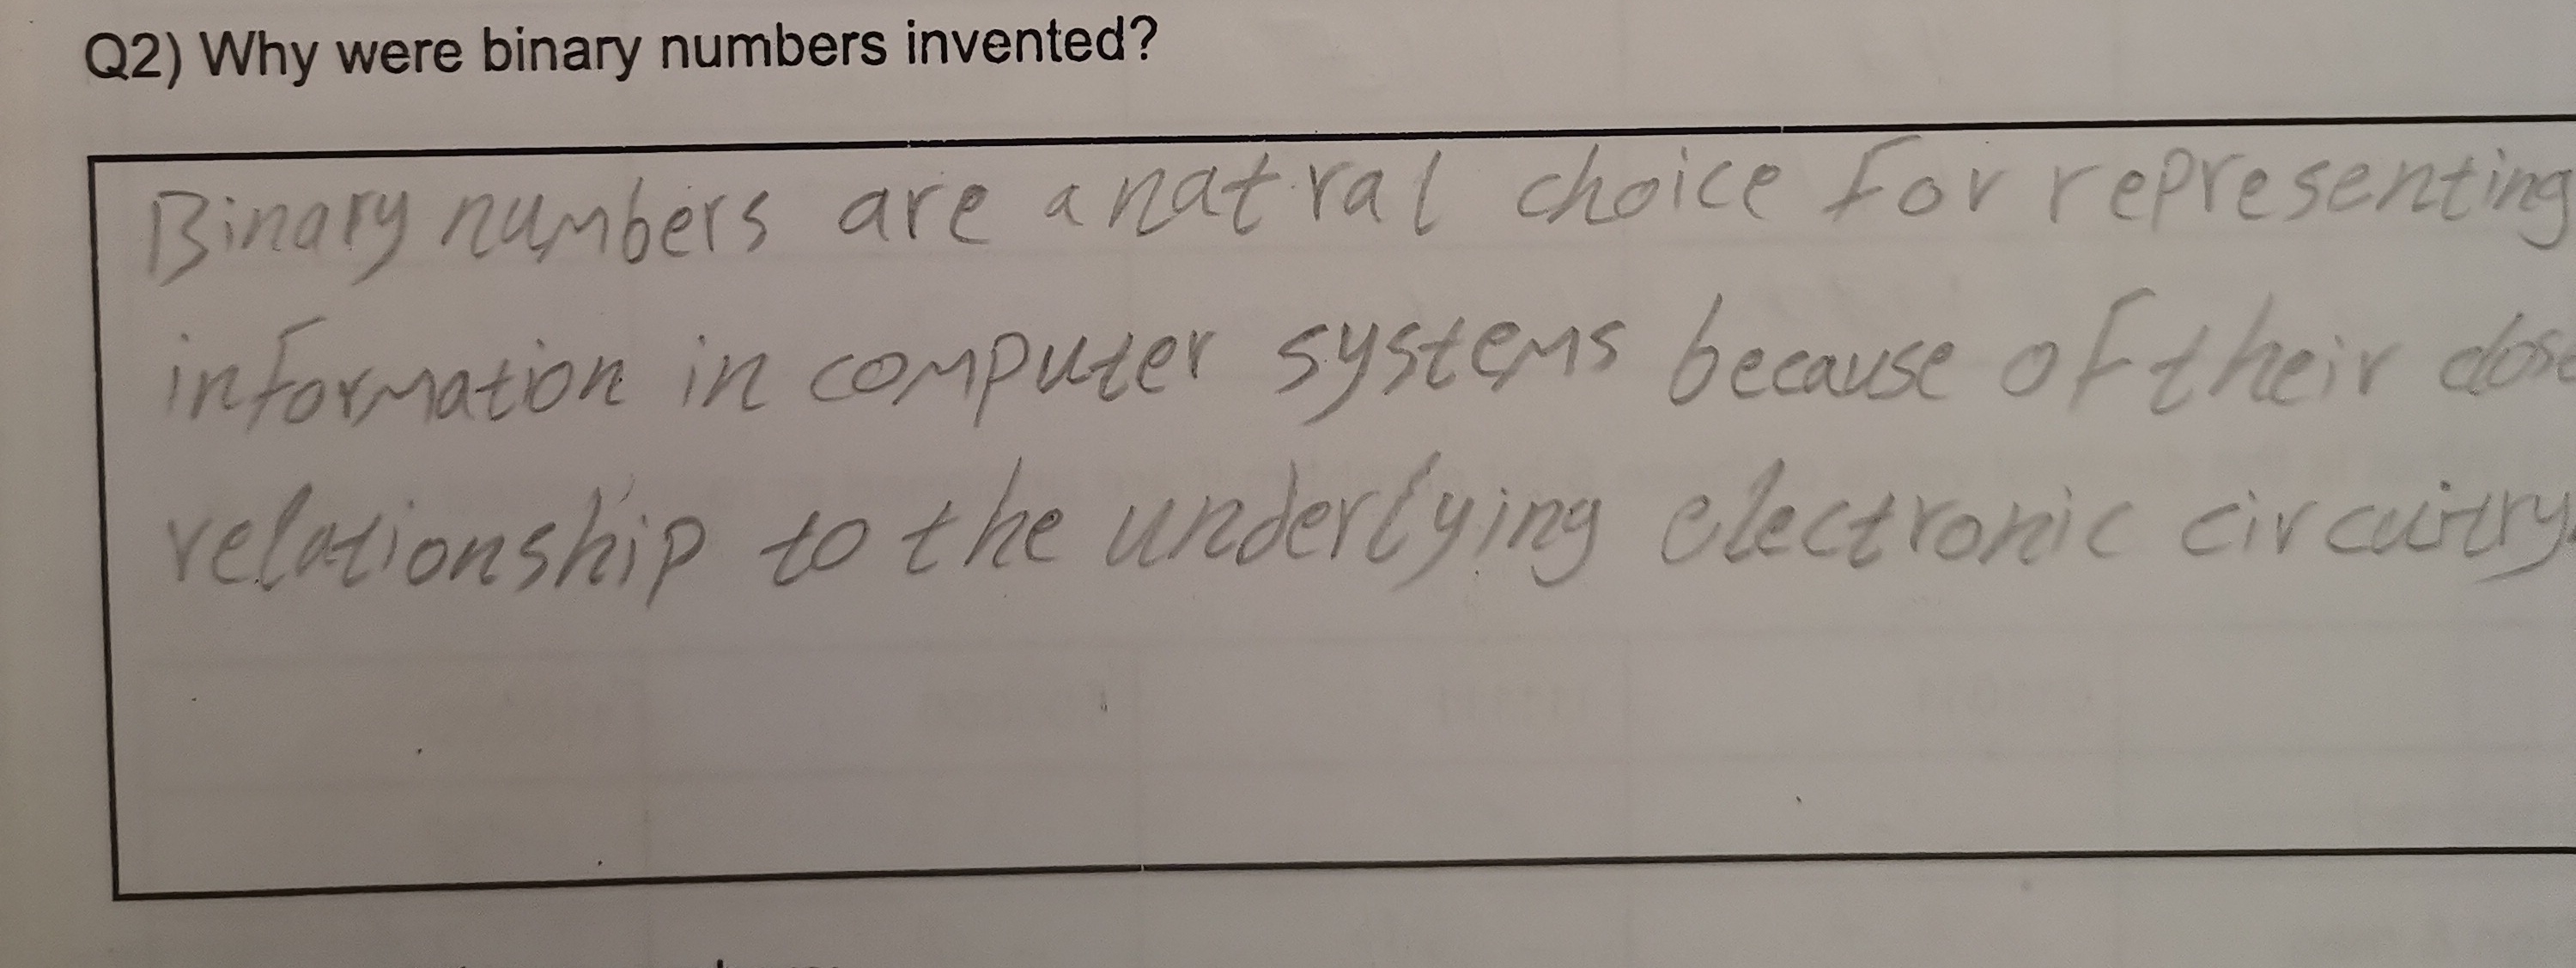 Q2) Why were binary numbers invented?
Binary numbers are a natral choice for representing
information in computer systems because of their close
relationship to the underlying electronic circuitry.